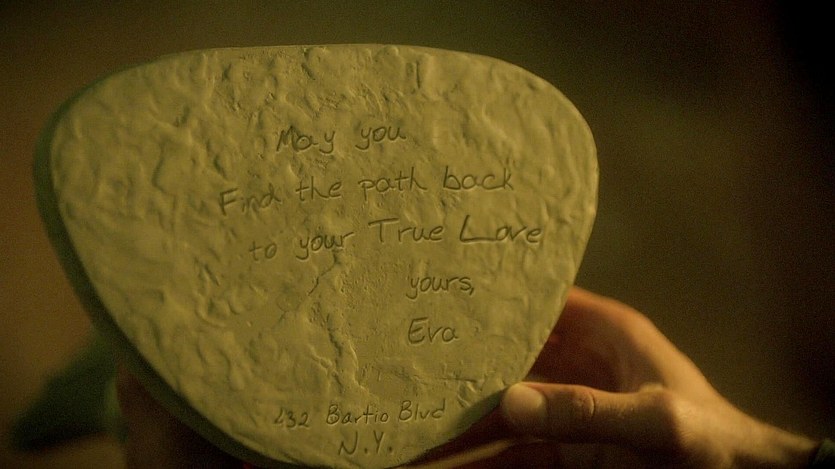 May you
Find the path back
to your True Love
yours,
Eva
432 Bartio Blvd
N.Y.